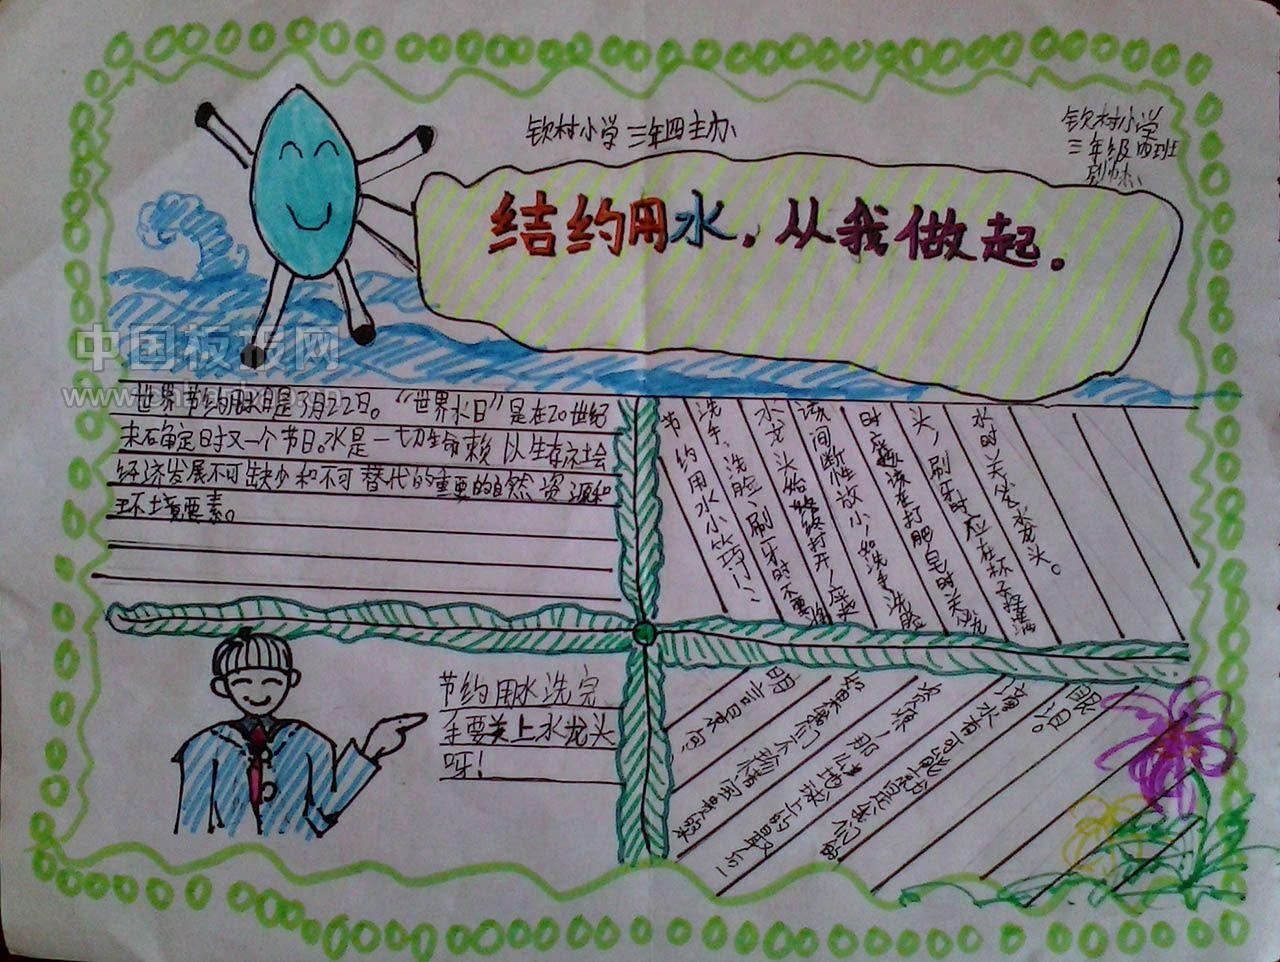 钦村小学 三年四主办
钦村小学
三年级四班
结约用水，从我做起。
中国板报网
世界节约用水日是3月22日。“世界水日”是在20世纪
末确定日时又一个节日。水是一切生命赖以生存社会
经济发展不可缺少和不可替代的重要的自然资源和
环境要素。
节约用水小巧门：
洗手、洗脸、刷牙时不要将
水龙头始终打开，应该
该间断性放小，如洗手洗脸
时应该在打肥皂时关洗
头，刷牙时应在杯子接满
水时关住水龙头。
节约用水洗完
手要关上水龙头
呀！
明言目录句：
如果我们不珍惜每一滴
水源，那么地球上的最后一
滴水有可能会是我们的
眼泪。